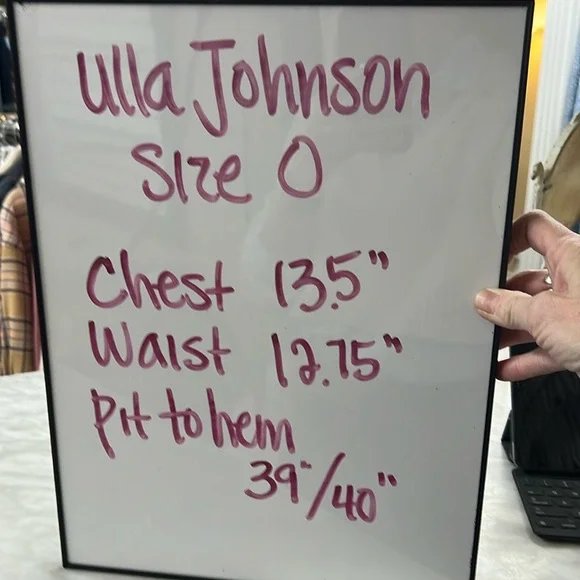 Ulla Johnson
Size 0
Chest 13.5"
Waist 12.75"
Pit to hem
39"/40"